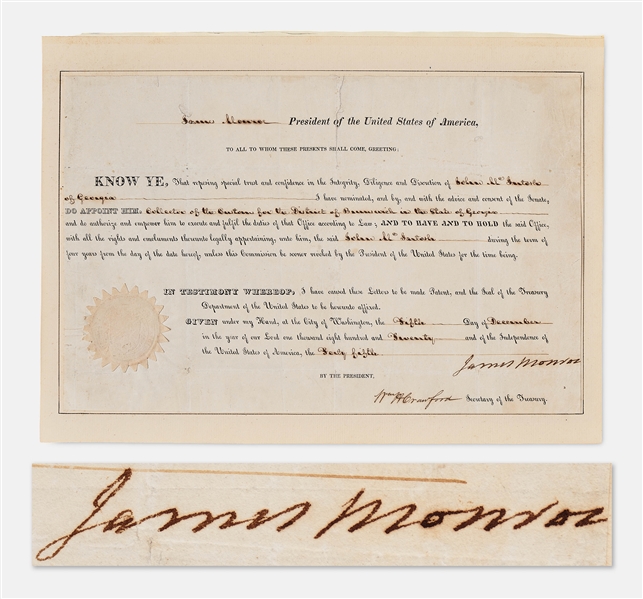 James Monroe President of the United States of America,
TO ALL TO WHOM THESE PRESENTS SHALL COME, GREETING:
KNOW YE, That reposing special trust and confidence in the Integrity, Diligence and Discretion of John McIntosh
of Georgia I have nominated, and by, and with the advice and consent of the Senate,
DO APPOINT HIM, Collector of the Customs for the District of Brunswick in the State of Georgia
and do authorize and empower him to execute and fulfil the duties of that Office according to Law; AND TO HAVE AND TO HOLD the said Office,
with all the rights and emoluments thereunto legally appertaining, unto him, the said John McIntosh during the term of
four years from the day of the date hereof, unless this Commission be sooner revoked by the President of the United States for the time being.
IN TESTIMONY WHEREOF, I have caused these Letters to be made Patent, and the Seal of the Treasury
Department of the United States to be hereunto affixed.
GIVEN under my Hand, at the City of Washington, the Fifth Day of December
in the year of our Lord one thousand eight hundred and Twenty and of the Independence
of the United States of America, the Forty fifth
James Monroe
BY THE PRESIDENT,
Wm H Crawford Secretary of the Treasury.
James Monroe